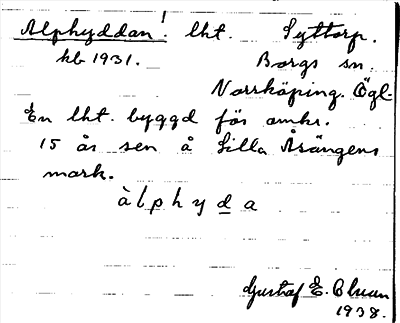 Alphyddan! lht. Syttorp.
kb 1931. Borgs sn.
Norrköping. Ögl
En lht. byggd för omkr.
15 år sen å Lilla Åsängens
mark.
àlphyda
Gustaf E.
1938.